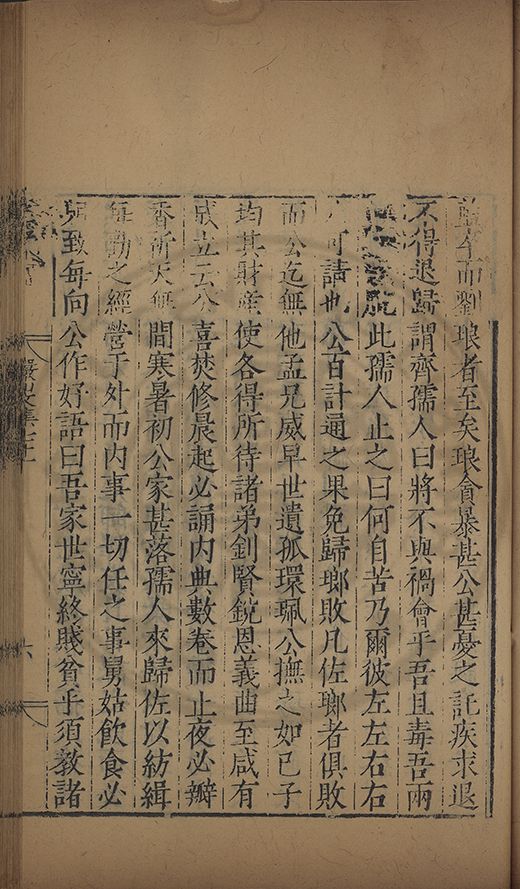 年而劉琅者至矣琅貪暴甚公甚憂之託疾求退
不得退歸謂齊孺人曰將不與禍會乎吾且毒吾兩
此孺人止之曰何自苦乃爾彼左左右右
可請也公百計通之果免歸瑯敗凡佐瑯者俱敗
而公迄無他孟兄威早世遺孤環珮公撫之如已子
均其財產使各得所待諸弟釗賢銳恩義曲至咸有
成立云公喜焚修晨起必誦內典數卷而止夜必瓣
香祈天無間寒暑初公家甚落孺人來歸佐以紡緝
每勸之經營于外而內事一切任之事舅姑飲食必
致每向公作好語曰吾家世寧終賤貧乎須教諸
六